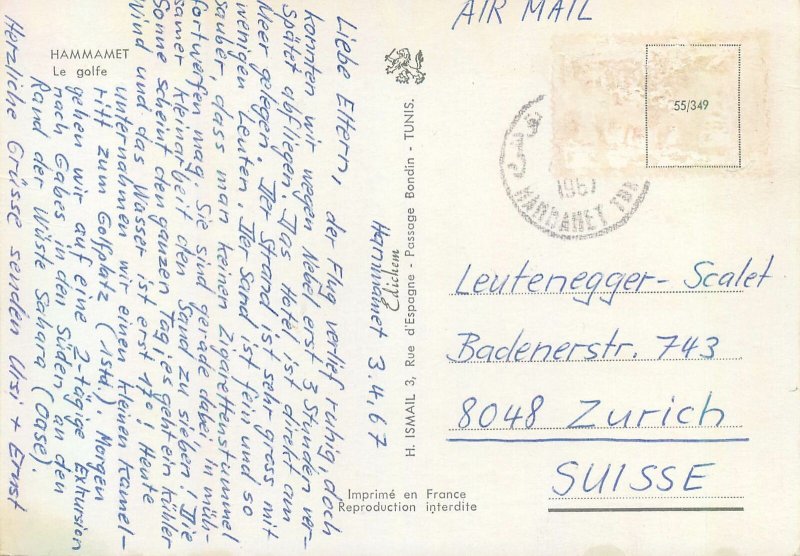 AIR MAIL
HAMMAMET
Le golfe
55/349
1967
HAMMAMET
Hammamet 3.4.67
Liebe Eltern, der Flug verlief ruhig, doch
konnten wir wegen Nebel erst 3 Stunden ver-
spätet abfliegen. Das Hotel ist direkt am
Meer gelegen. Der Strand ist sehr gross mit
wenigen Leuten. Der Sand ist fein und so
sauber, dass man keinen Zigarettenstummel
fortwerfen mag. Sie sind gerade dabei, in müh-
samer Kleinarbeit den Sand zu sieben! Die
Sonne scheint den ganzen Tag; es geht ein kühler
Wind und das Wasser ist erst 17°! Heute
unternahmen wir einen kleinen Kamel-
ritt zum Golfplatz (1 Std). Morgen
gehen wir auf eine 2-tägige Exkursion
nach Gabes in den Süden an den
Rand der Wüste Sahara (Oase).
Herzliche Grüsse senden Ursi + Ernst
Edichem
H. ISMAIL 3, Rue d'Espagne - Passage Bondin - TUNIS.
Leutenegger-Scalet
Badenerstr. 743
8048 Zurich
SUISSE
Imprimé en France
Reproduction interdite